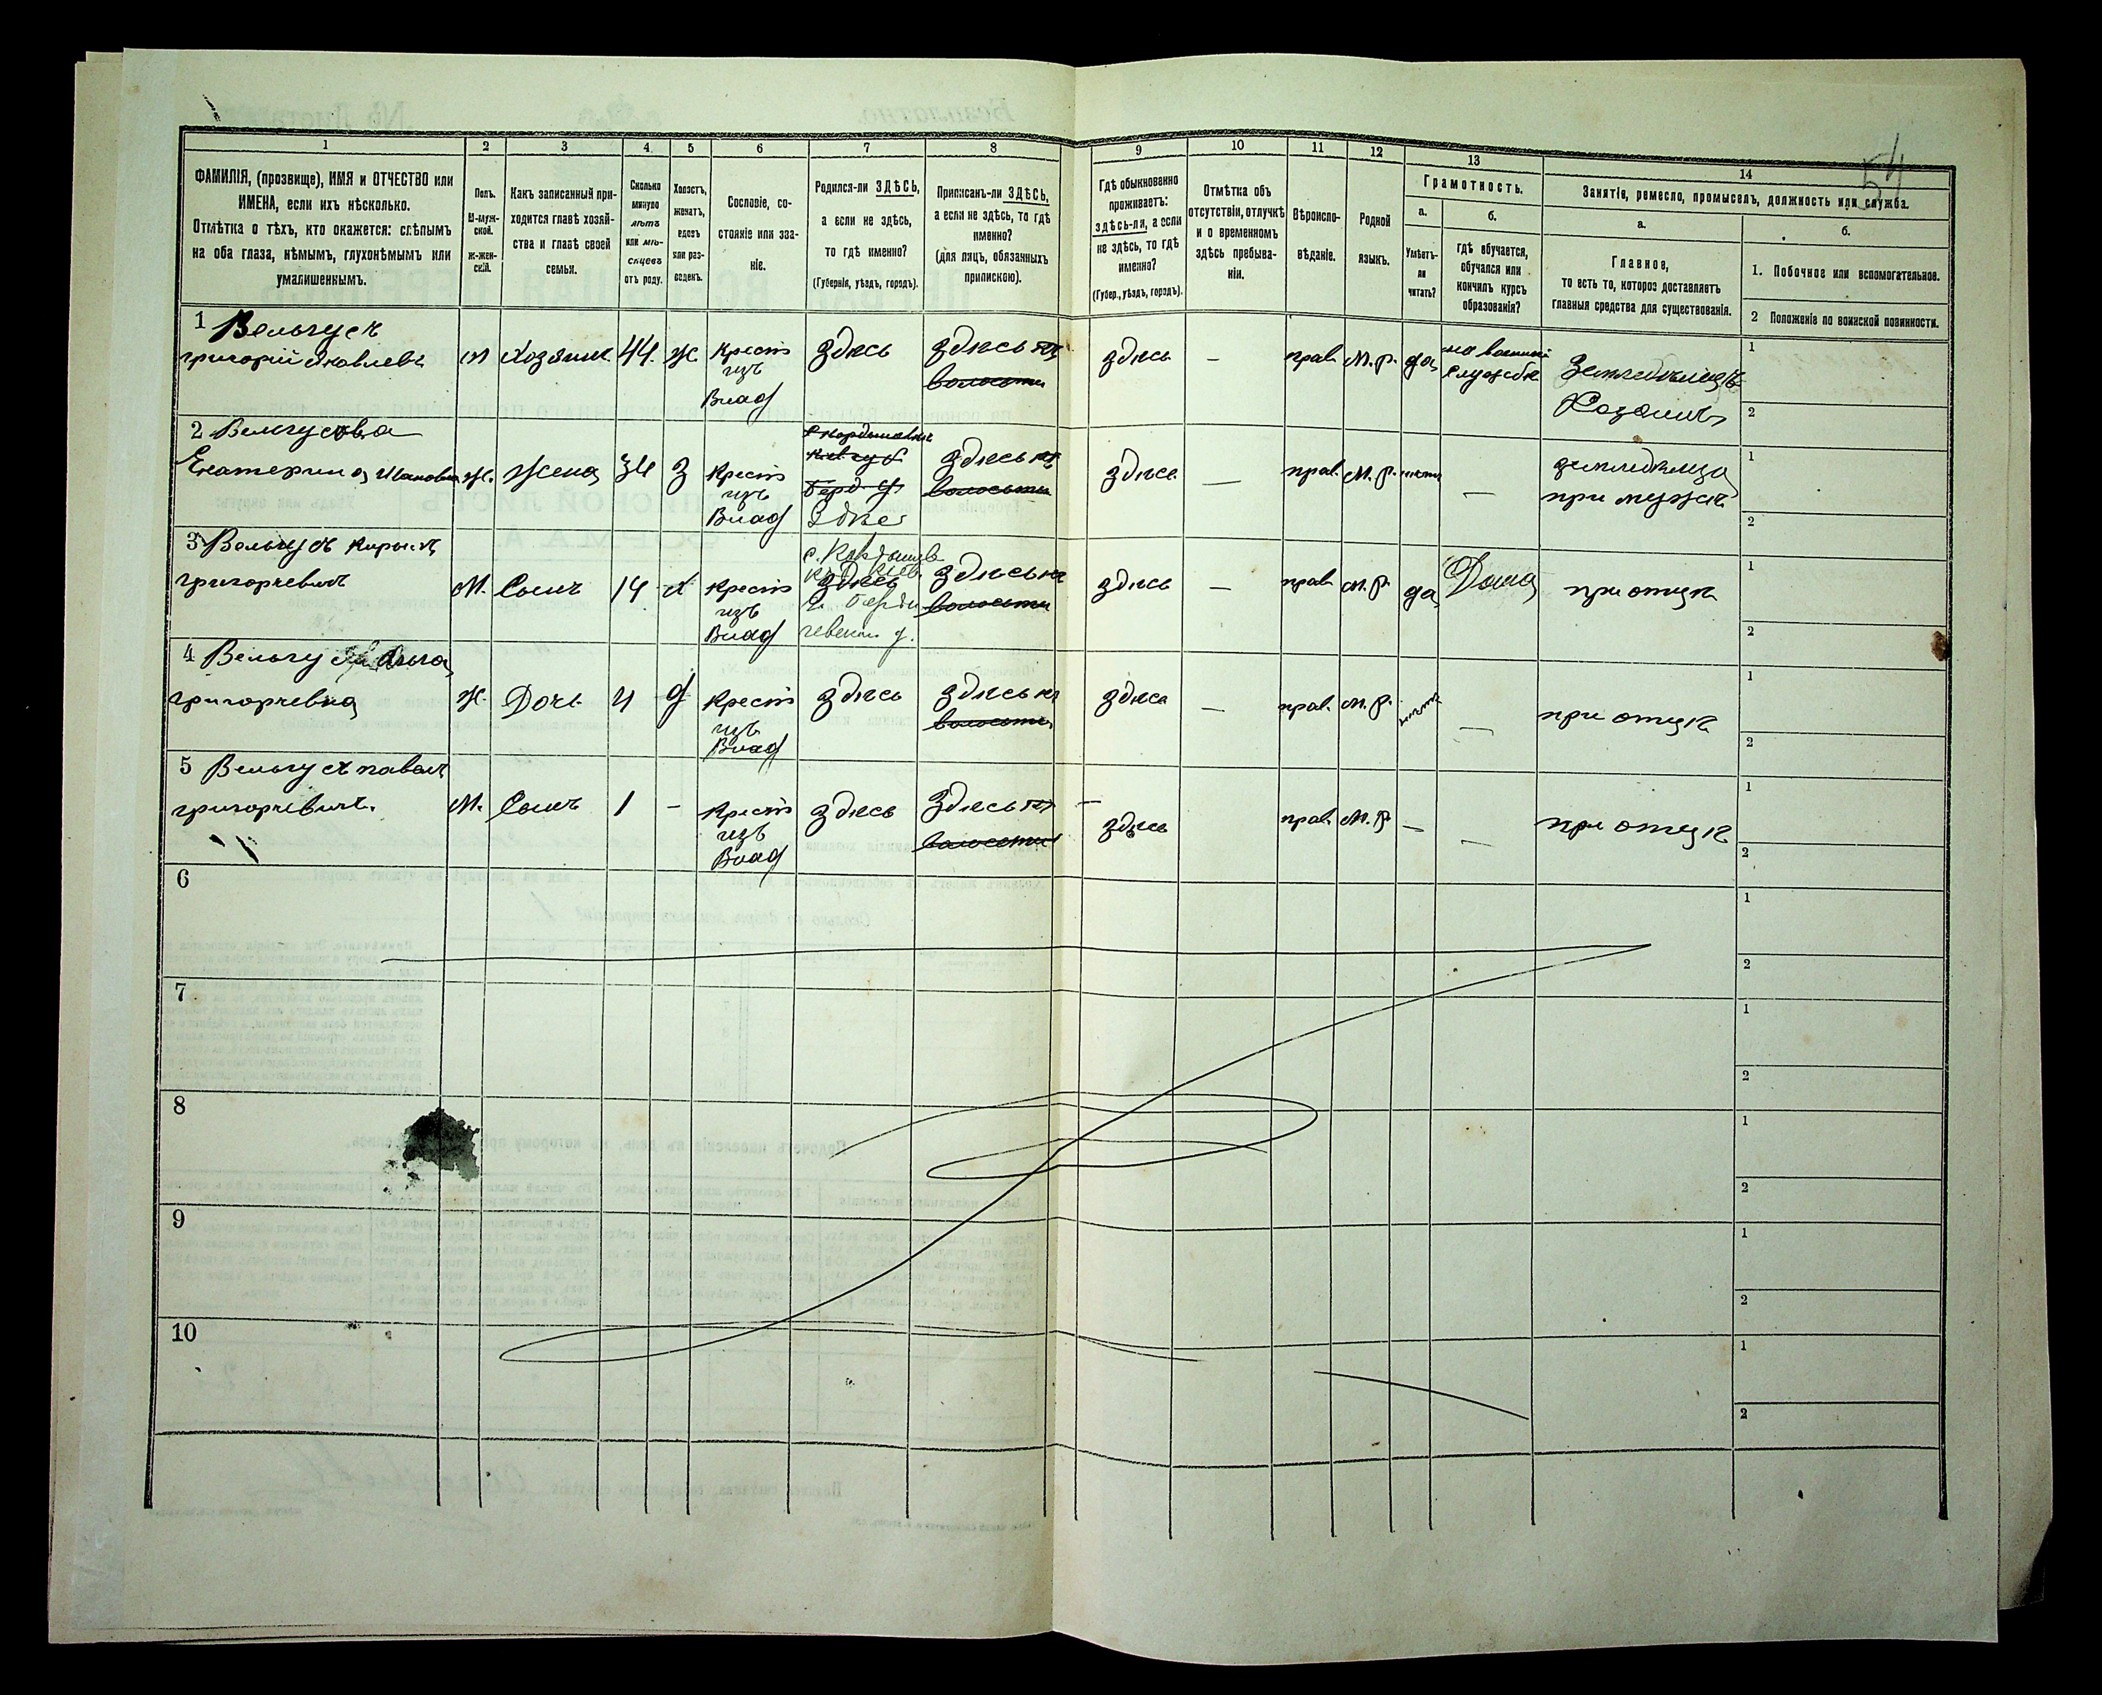 54
1 2 3 4 5 6 7 8 9 10 11 12 13 14
ФАМИЛІЯ, (прозвище), ИМЯ и ОТЧЕСТВО или
ИМЕНА, если ихъ нѣсколько.
Отмѣтка о тѣхъ, кто окажется: слѣпымъ
на оба глаза, нѣмымъ, глухонѣмымъ или
умалишеннымъ.
Полъ.
М-муж-
ской.
Ж-жен-
скій.
Какъ записанный при-
ходится главѣ хозяй-
ства и главѣ своей
семьи.
Сколько
минуло
лѣтъ
или мѣ-
сяцевъ
отъ роду.
Холостъ,
женатъ,
вдовъ
или раз-
веденъ.
Сословіе, со-
стояніе или зва-
ніе.
Родился-ли ЗДѢСЬ,
а если не здѣсь,
то гдѣ именно?
(Губернія, уѣздъ, городъ).
Приписанъ-ли ЗДѢСЬ,
а если не здѣсь, то гдѣ
именно?
(для лицъ, обязанныхъ
припискою).
Гдѣ обыкновенно
проживаетъ:
здѣсь-ли, а если
не здѣсь, то гдѣ
именно?
(Губер., уѣздъ, городъ).
Отмѣтка объ
отсутствіи, отлучкѣ
и о временномъ
здѣсь пребыва-
ніи.
Вѣроиспо-
вѣданіе.
Родной
языкъ.
Грамотность.
а.
Умѣетъ-
ли
читать?
б.
гдѣ обучается,
обучался или
кончилъ курсъ
образованія?
Занятіе, ремесло, промыселъ, должность или служба.
а.
Главное,
то есть то, которое доставляетъ
главныя средства для существованія.
б.
1. Побочное или вспомогательное.
2 Положеніе по воинской повинности.
1 Вельгусъ
григорій Яковлевъ
М
Хозяинъ
44.
Ж
Крест
изъ
Влад
здѣсь
здѣсь
волости
здѣсь
—
прав.
М. р.
да
на военной
службѣ
Земледѣлецъ
Хозяинъ
1
2
2 Вельгусова
Екатерина Ивановна
Ж.
Жена
34
З
Крест
изъ
Влад
здѣс
здѣсь
волости
здѣсь
—
прав.
М. р.
нѣтъ
—
земледѣлица
при мужѣ
1
2
3 Вельгусъ
григорьевичъ
М.
Сынъ
14
Х
Крест
изъ
Влад
здѣсь
здѣсь
волости
здѣсь
—
прав
М. р.
да
Дома
при отцѣ
1
2
4
григорьевна
Ж.
Дочь
4
д
Крест
изъ
Влад
здѣсь
здѣсь
волости
здѣсь
—
прав.
М. р.
нѣтъ
—
при отцѣ
1
2
5 Вельгусъ павелъ
григорьевичъ.
М.
Сынъ
1
-
Крест
изъ
Влад
здѣсь
здѣсь
волости
—
здѣсь
прав.
М. р.
—
—
при отцѣ
1
2
6
1
2
7
1
2
8
1
2
9
1
2
10
1
2